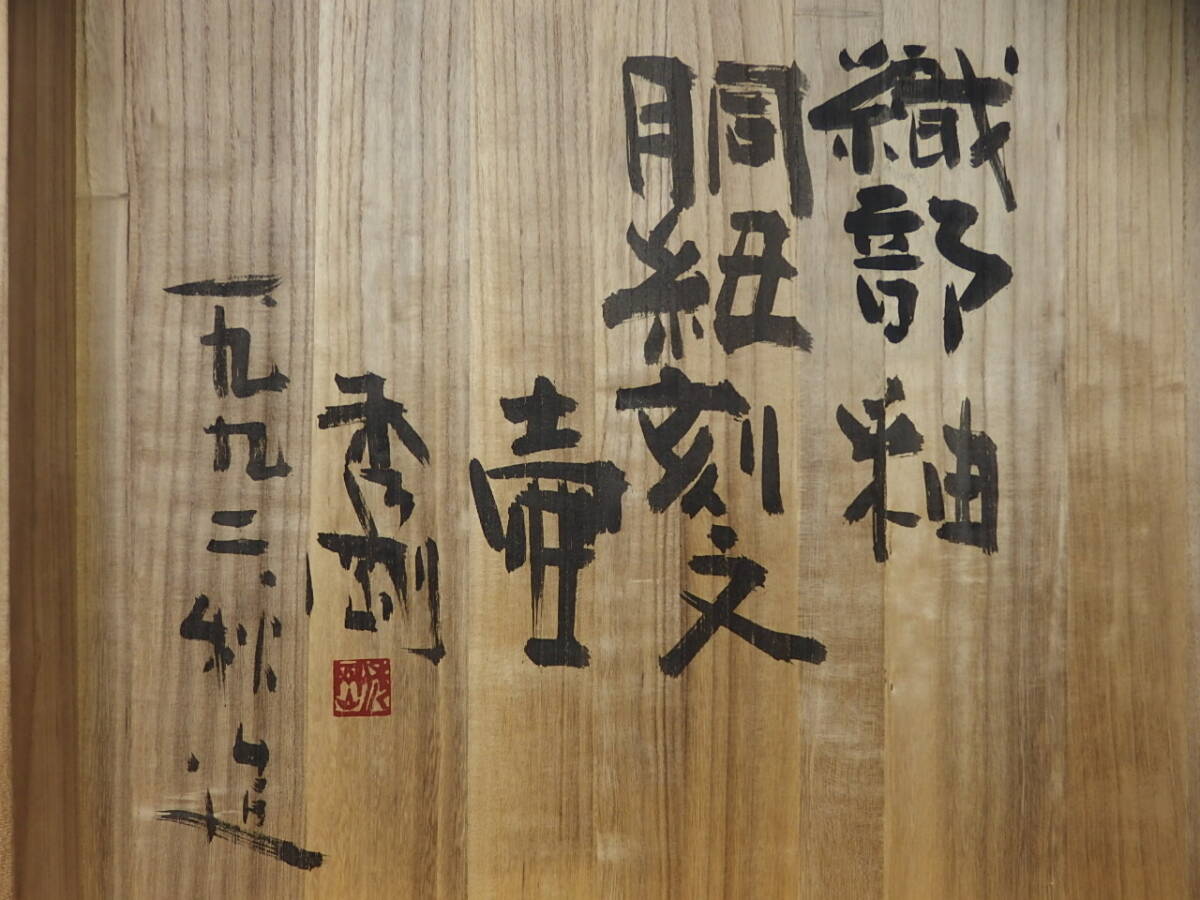 織部釉
胴紐刻文
壺
一九九二、秋造